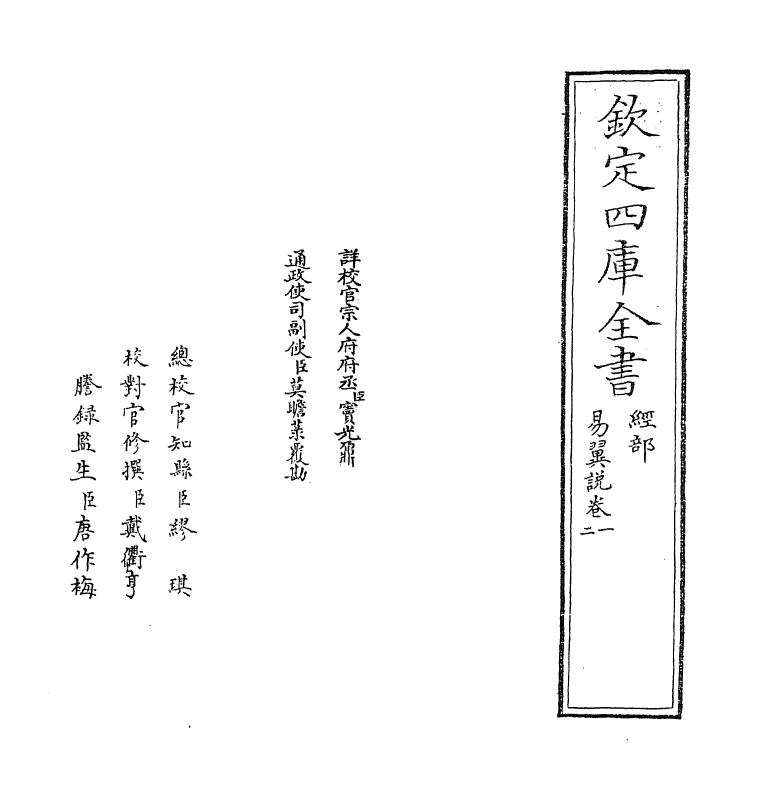 欽定四庫全書
經部
易翼說卷一二
詳校官宗人府府丞臣竇光鼐
通政使司副使臣莫瞻菉覆勘
總校官知縣臣繆琪
校對官修撰臣戴衢亨
謄錄監生臣唐作梅